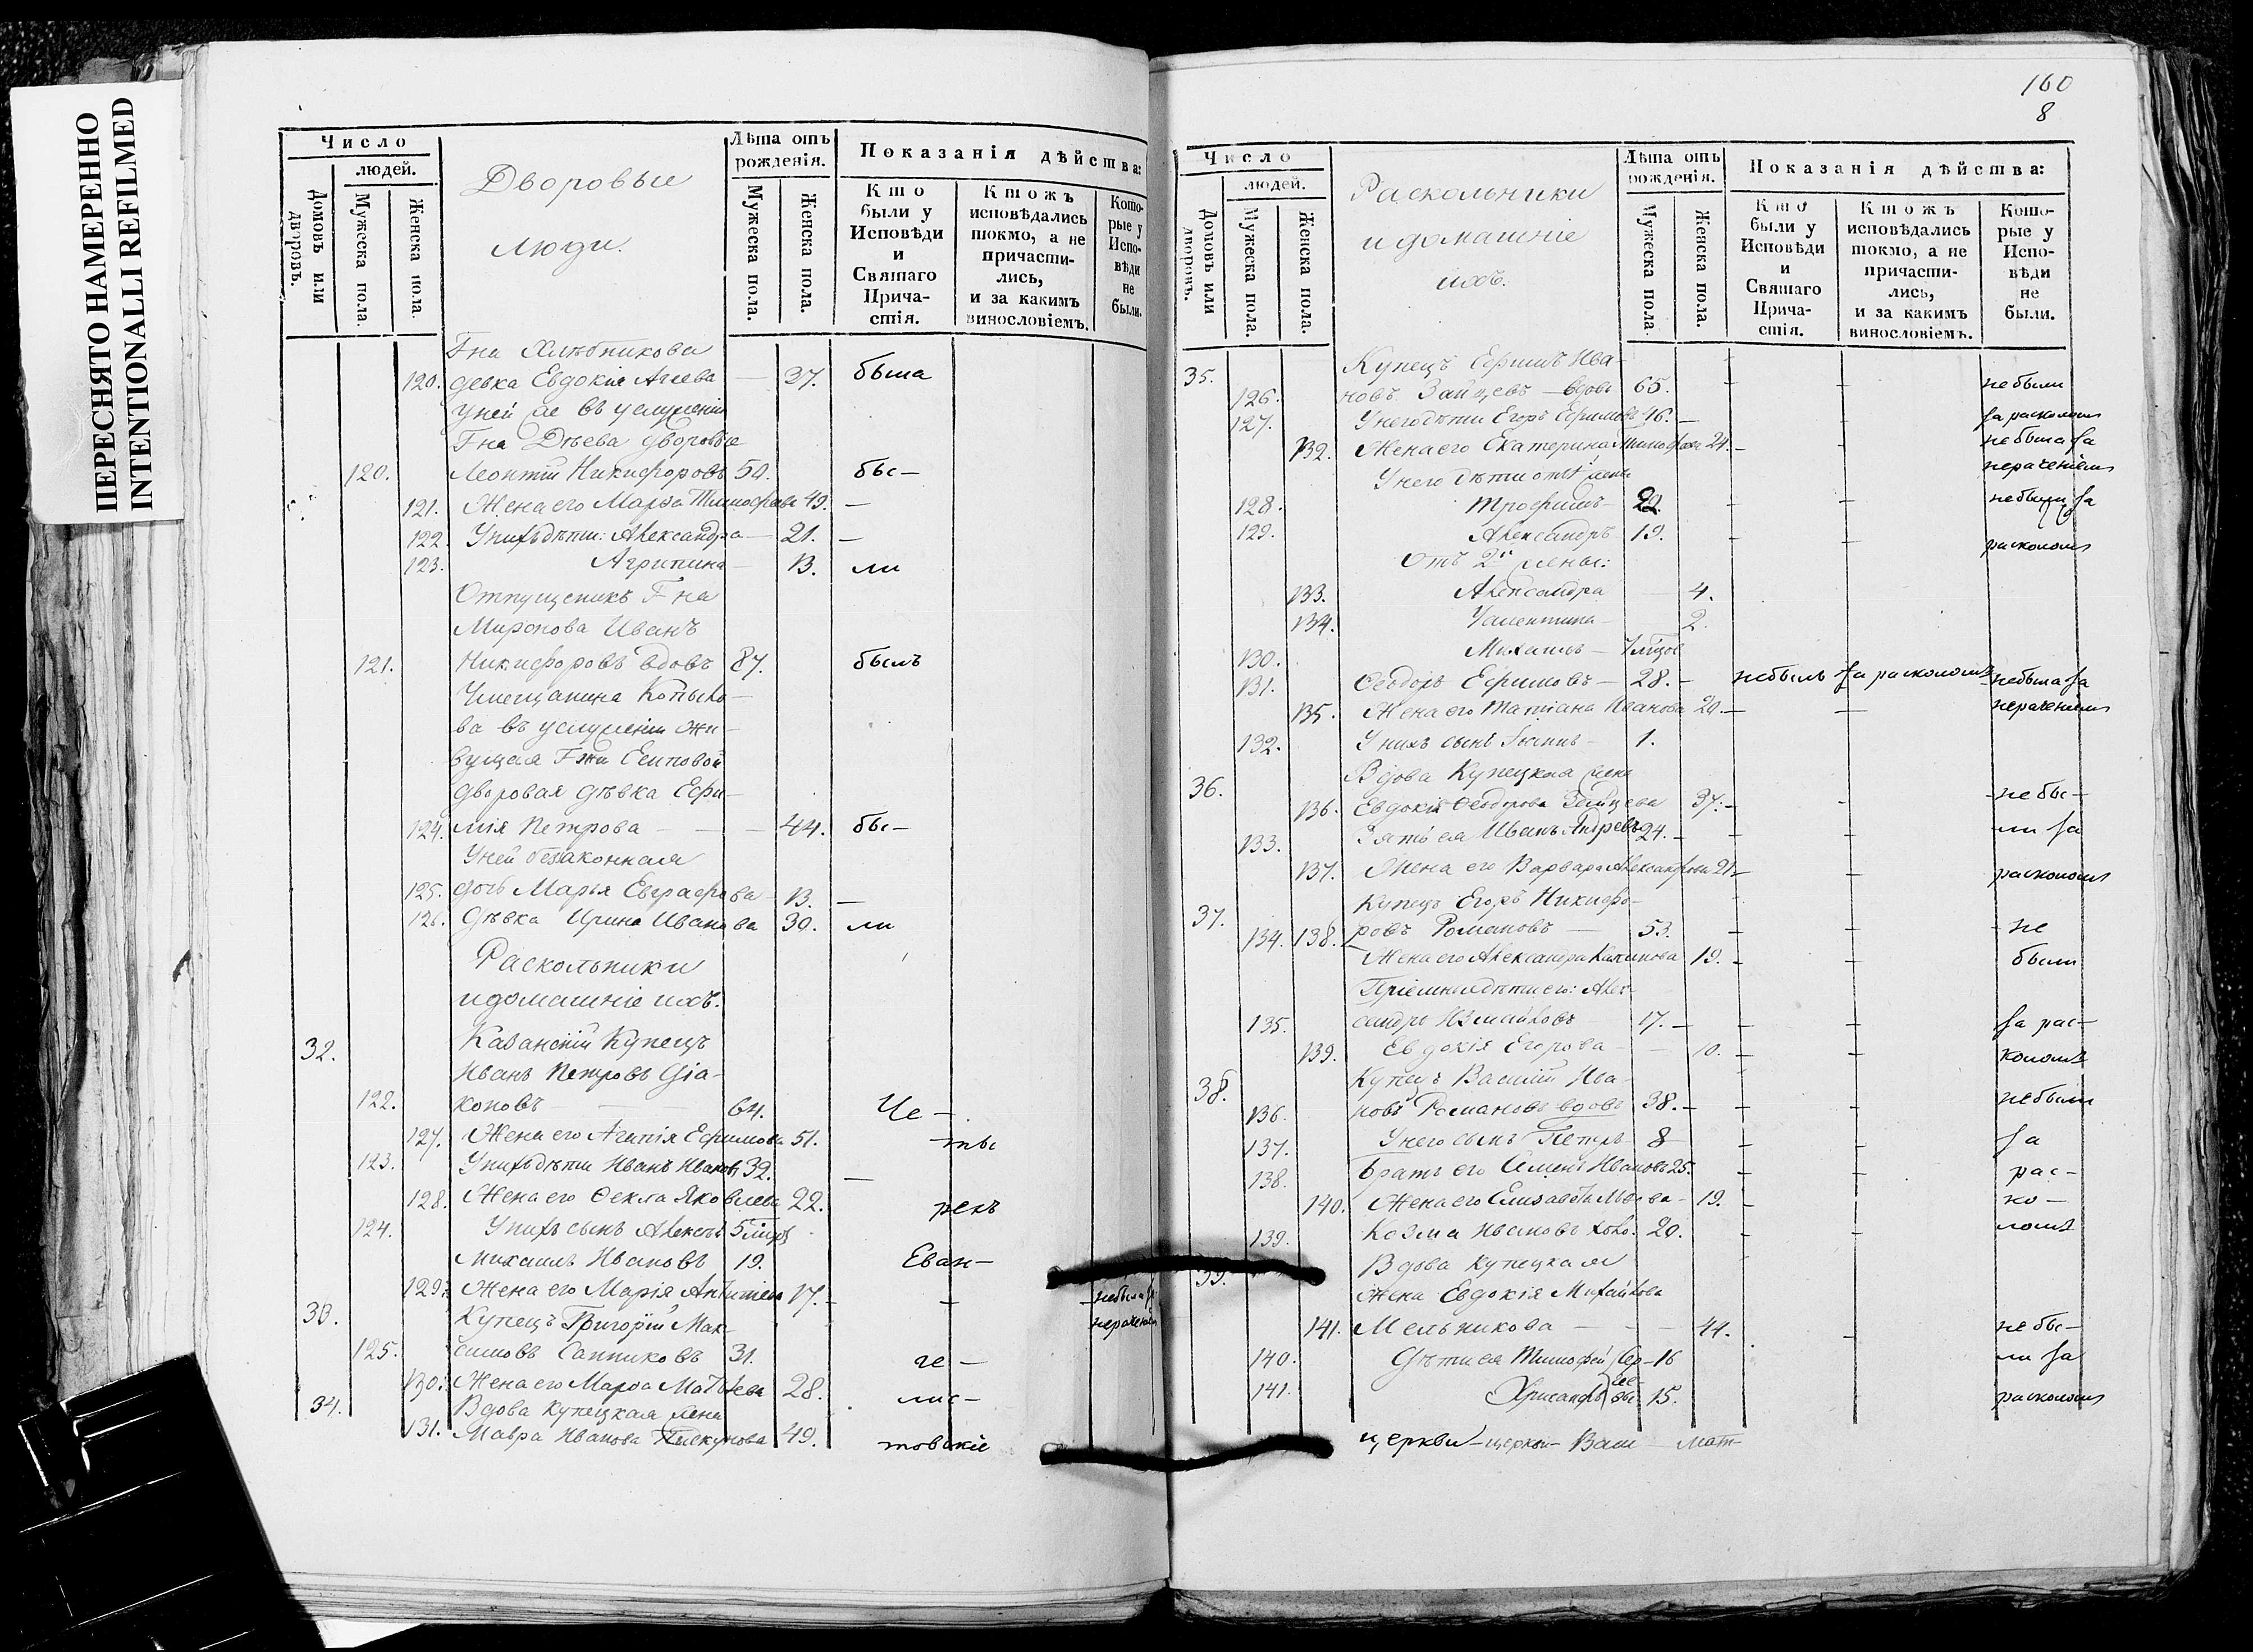 ПЕРЕСНЯТО НАМЕРЕННО
INTENTIONALLI REFILMED
Число
людей.
Домовъ или дворовъ.
Мужеска пола.
Женска пола.
Дворовые
люди.
Лѣта отъ рожденія.
Мужеска пола.
Женска пола.
Показанія дѣйства:
Кто были у Исповѣди и Святаго Причастія.
Ктожъ исповѣдались токмо, а не причастились, и за какимъ винословіемъ.
Которые у Исповѣди не были.
Гна Хлѣбникова
120. девка Евдокія Агева — 37. была
Гна Дѣева дворовые
120. Леонтій Никифоровъ 50. бы—
121. Жена его Марѳа Тимофеева 49. —
122. Унихъ дѣти: Александра — 21. —
123. Агрипина — 13. ли
Отпущеникъ Гна
Миронова Иванъ
121. Никифоровъ вдовъ 87. былъ
ва въ услуженіи жи—
вущая Гжи Есиповой
дворовая дѣвка Ефи—
124. мія Петрова — — — 44. бы—
Уней безаконная
125. дочь Марья Евграфова — 13. —
126. дѣвка Ирина Иванова 30. ли
Раскольники
и домашніе ихъ.
32. Казанскій Купецъ
Иванъ Петровъ Діа-
122. коновъ — 64. Че—
127. Жена его Агапія Ефимова 51. —ты
123. Унихъ дѣти Иванъ Ивановъ 32. —
128. Жена его Ѳекла Яковлева 22. рехъ
124. Унихъ сынъ Алексѣй 5 мцовъ
Михаилъ Ивановъ 19. Еван—
129. Жена его Марія 17. — — —небыла за
нераченіемъ
33. Купецъ Григорій Мак-
125. симовъ Сапниковъ 31. ге—
130. Жена его Марѳа Матвѣева 28. лис—
34. Вдова купецкая жена
131. Мавра Иванова 49. товскіе
160
8
Число
людей.
Домовъ или дворовъ.
Мужеска пола.
Женска пола.
Раскольники
и домашніе
ихъ.
Лѣта отъ рожденія.
Мужеска пола.
Женска пола.
Показанія дѣйства:
Кто были у Исповѣди и Святаго Причастія.
Ктожъ исповѣдались токмо, а не причастились, и за какимъ винословіемъ.
Которые у Исповѣди не были.
35. Купецъ Ефимъ Ива-
126. новъ Зайцевъ — вдовъ 65. — — небыли
127. Унего дѣти Егоръ Ефимовъ 46. — — за расколомъ
132. Жена его Екатерина 24. — — небыла за
Унего дѣти отъ 1й жены нераченіемъ
128. Трофимъ — 22. — — небыли за
129. Александръ 19. — — расколомъ
Отъ 2й жены:
133. Александра — 4.
134. Валентина — 2.
130. Михаилъ — 7 мцовъ
131. Ѳеодоръ Ефимовъ — 28. — небылъ за расколомъ небыла за
135. Жена его Татіана Иванова 20. — — нераченіемъ
132. Унихъ сынъ — 1.
36. Вдова Купецкая жена
136. Евдокія Ѳеодорова Зайцева 37. — — —небы—
133. Зять ея Иванъ Андреевъ 24. — — — ли за
137. Жена его Варвара Александрова 21. — — расколомъ
37. Купецъ Егоръ Никифо-
134. 138. ровъ Романовъ — 53. — — не
Жена его Александра Калинова 19. — — были
Пріемныя дѣти его: Алек-
135. сандръ Измайловъ 17. — — — за рас—
139. Евдокія Егорова — 10. — — коломъ
38. Купецъ Василій Ива-
136. новъ Романовъ вдовъ 38. — — — небыли
137. Унего сынъ Петръ 8 — — за
138. Братъ его Семенъ Ивановъ 25. — — рас—
140. Жена его Елизавета Львова — 19. — ко—
139. Козма Ивановъ холо. 20. — — ломъ
39. Вдова купецкая
жена Евдокія Михайлова
141. Мельникова — — — 44. — небы—
140. Дѣти ея Тимофей Сер— 16 ли за
141. Хрисанфъ гѣе-вы. 15. расколомъ
церкви—церкви— Ваш мат—